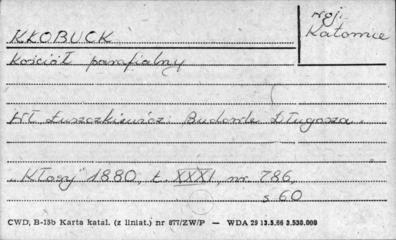 woj.
Katowice
KŁOBUCK
Kościół parafialny
Wł Łuszczkiewicz: Budowle Długosza.
"Kłosy" 1880, t. XXXI, nr. 786,
s 60
CWD, B-13b Karta katal. (z liniat.) nr 877/ZW/P — WDA 29 13.5.66 3.530.000